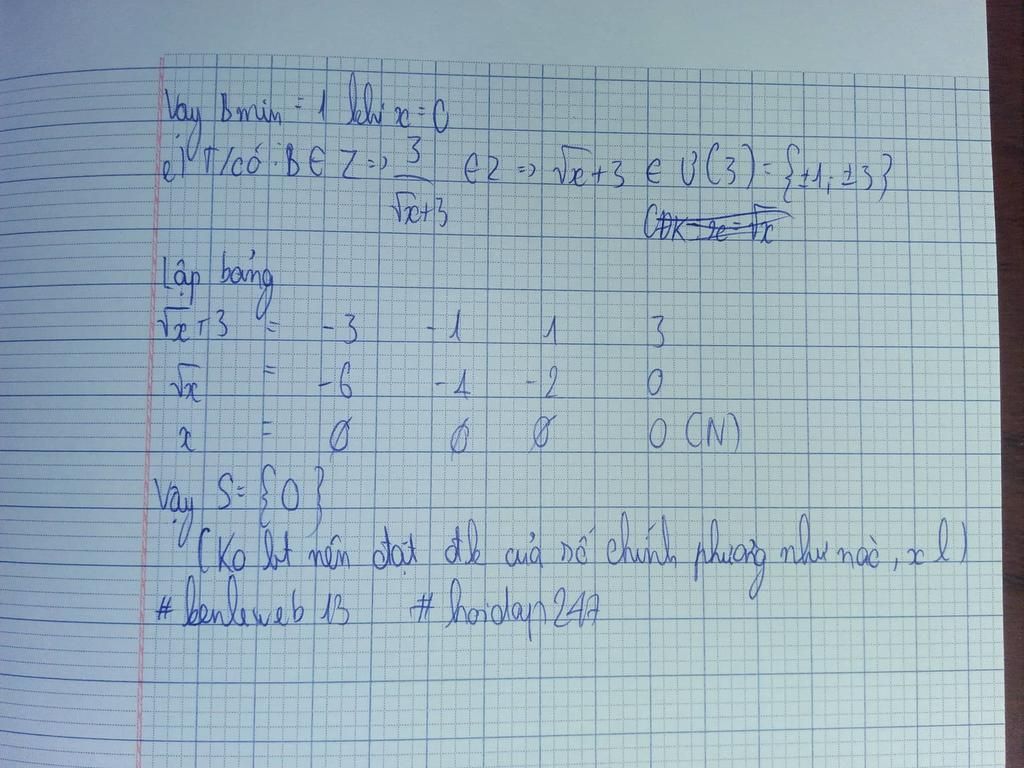 Vậy Bmin = 1 khi x = 0
e) T/có : B ∈ Z => 3/(√x+3) ∈ Z => √x+3 ∈ Ư(3) = {±1; ±3}
Lập bảng
√x+3 = -3 -1 1 3
√x = -6 -1 -2 0
x = ∅ ∅ ∅ 0 (N)
Vậy S = {0}
(Ko bt nên đạt đk của số chính phương như nào, xl)
#benleweb13 #hoidap247